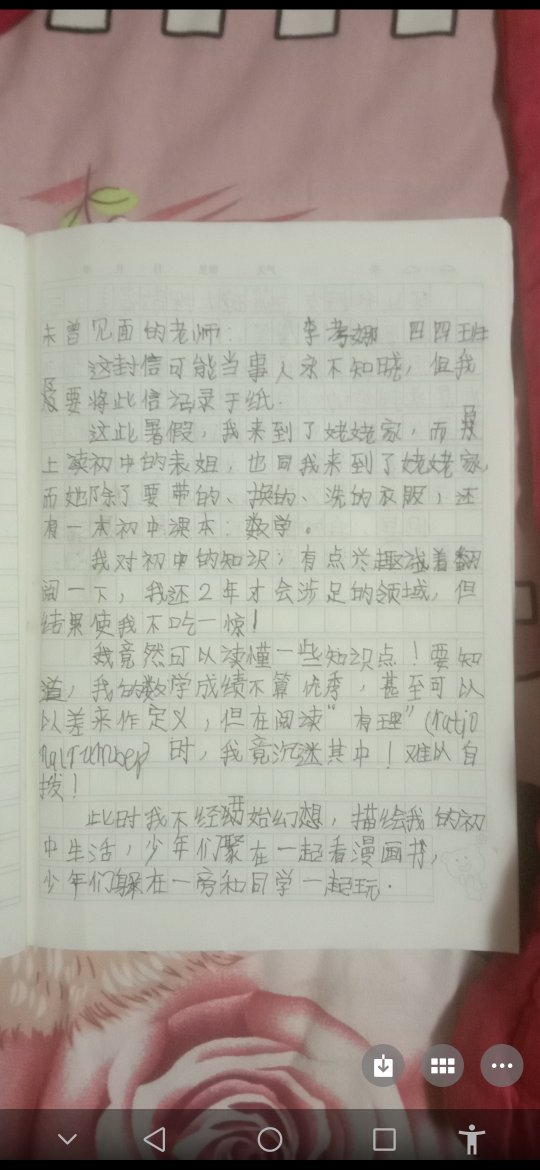 未曾见面的老师：李考娜 四四班
这封信可能当事人永不知晓，但我
仍要将此信记录于纸.
这此暑假，我来到了姥姥家，而
上读初中的表姐，也同我来到了姥姥家，
而她除了要带的、换的、洗的衣服，还
有一本初中课本：数学。
我对初中的知识，有点兴趣试着翻
阅一下，我还2年才会涉足的领域，但
结果使我不吃一惊！
我竟然可以读懂一些知识点！要知
道，我的数学成绩不算优秀，甚至可以
以差来作定义，但在阅读“有理”(ratio
nalnumber) 时，我竟沉迷其中！难以自
拔！
此时我不经开始幻想，描绘我的初
中生活，少年们聚在一起看漫画书，
少年们躲在一旁和同学一起玩.